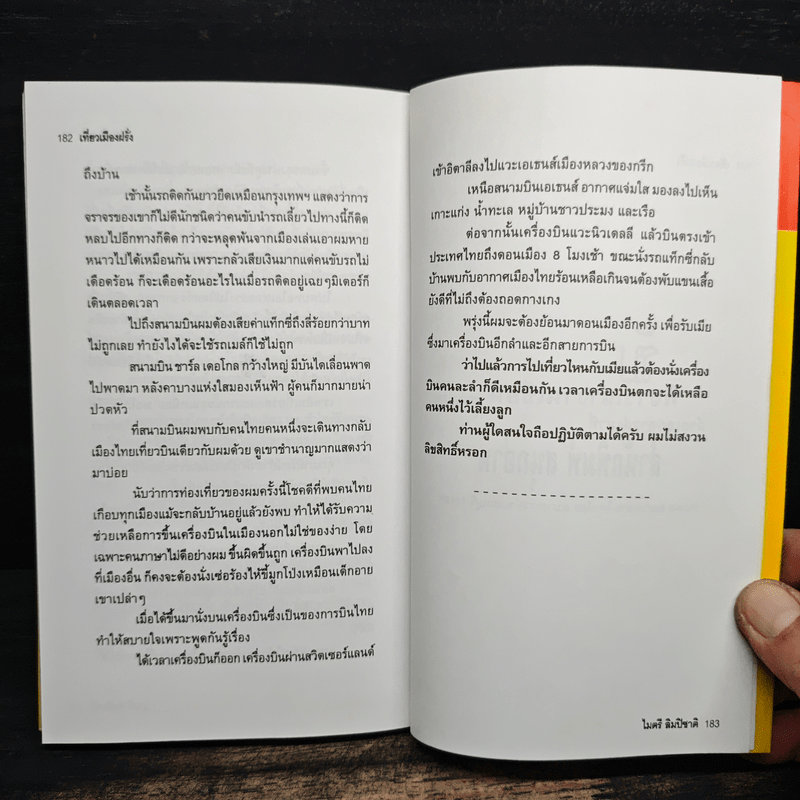 182 เที่ยวเมืองฝรั่ง
ถึงบ้าน
เช้านั้นรถติดกันยาวยืดเหมือนกรุงเทพฯ แสดงว่าการ
จราจรของเขาก็ไม่ดีนักชนิดว่าคนขับนำรถเลี้ยวไปทางนี้ก็ติด
หลบไปอีกทางก็ติด กว่าจะหลุดพ้นจากเมืองเล่นเอาผมหาย
หนาวไปได้เหมือนกัน เพราะกลัวเสียเงินมากแต่คนขับรถไม่
เดือดร้อน ก็จะเดือดร้อนอะไรในเมื่อรถติดอยู่เฉยๆมิเตอร์ก็
เดินตลอดเวลา
ไปถึงสนามบินผมต้องเสียค่าแท็กซี่ถึงสี่ร้อยกว่าบาท
ไม่ถูกเลย ทำยังไงได้จะใช้รถเมล์ก็ใช้ไม่ถูก
สนามบิน ชาร์ล เดอโกล กว้างใหญ่ มีบันไดเลื่อนพาด
ไปพาดมา หลังคาบางแห่งใสมองเห็นฟ้า ผู้คนก็มากมายน่า
ปวดหัว
ที่สนามบินผมพบกับคนไทยคนหนึ่งจะเดินทางกลับ
เมืองไทยเที่ยวบินเดียวกับผมด้วย ดูเขาชำนาญมากแสดงว่า
มาบ่อย
นับว่าการท่องเที่ยวของผมครั้งนี้โชคดีที่พบคนไทย
เกือบทุกเมืองแม้จะกลับบ้านอยู่แล้วยังพบ ทำให้ได้รับความ
ช่วยเหลือการขึ้นเครื่องบินในเมืองนอกไม่ใช่ของง่าย โดย
เฉพาะคนภาษาไม่ดีอย่างผม ขึ้นผิดขึ้นถูก เครื่องบินพาไปลง
ที่เมืองอื่น ก็คงจะต้องนั่งเซ่อร้องไห้ขี้มูกโป่งเหมือนเด็กอาย
เขาเปล่าๆ
เมื่อได้ขึ้นมานั่งบนเครื่องบินซึ่งเป็นของการบินไทย
ทำให้สบายใจเพราะพูดกันรู้เรื่อง
ได้เวลาเครื่องบินก็ออก เครื่องบินผ่านสวิตเซอร์แลนด์
เข้าอิตาลีลงไปแวะเอเธนส์เมืองหลวงของกรีก
เหนือสนามบินเอเธนส์ อากาศแจ่มใส มองลงไปเห็น
เกาะแก่ง น้ำทะเล หมู่บ้านชาวประมง และเรือ
ต่อจากนั้นเครื่องบินแวะนิวเดลลี แล้วบินตรงเข้า
ประเทศไทยถึงดอนเมือง 8 โมงเช้า ขณะนั่งรถแท็กซี่กลับ
บ้านพบกับอากาศเมืองไทยร้อนเหลือเกินจนต้องพับแขนเสื้อ
ยังดีที่ไม่ถึงต้องถอดกางเกง
พรุ่งนี้ผมจะต้องย้อนมาดอนเมืองอีกครั้ง เพื่อรับเมีย
ซึ่งมาเครื่องบินอีกลำและอีกสายการบิน
ว่าไปแล้วการไปเที่ยวไหนกับเมียแล้วต้องนั่งเครื่อง
บินคนละลำก็ดีเหมือนกัน เวลาเครื่องบินตกจะได้เหลือ
คนหนึ่งไว้เลี้ยงลูก
ท่านผู้ใดสนใจถือปฏิบัติตามได้ครับ ผมไม่สงวน
ลิขสิทธิ์หรอก
ไมตรี ลิมปิชาติ 183